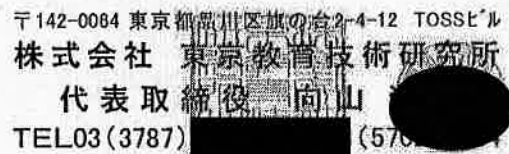 〒142-0064 東京都品川区旗の台2-4-12 TOSSビル
株式会社 東京教育技術研究所
代表取締役 向山
TEL03(3787) (57